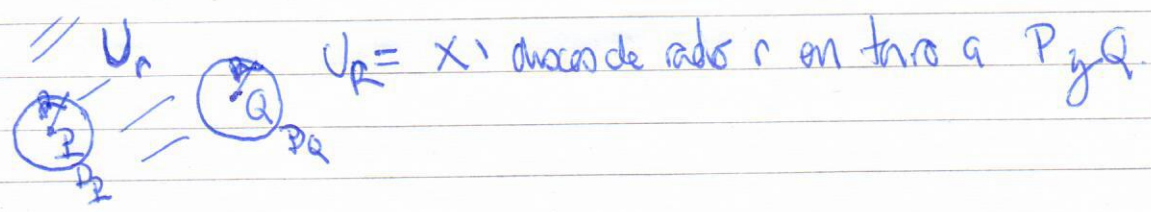 U_r U_R = X \ discos de radio r en torno a P y Q.
P Q
D_P D_Q